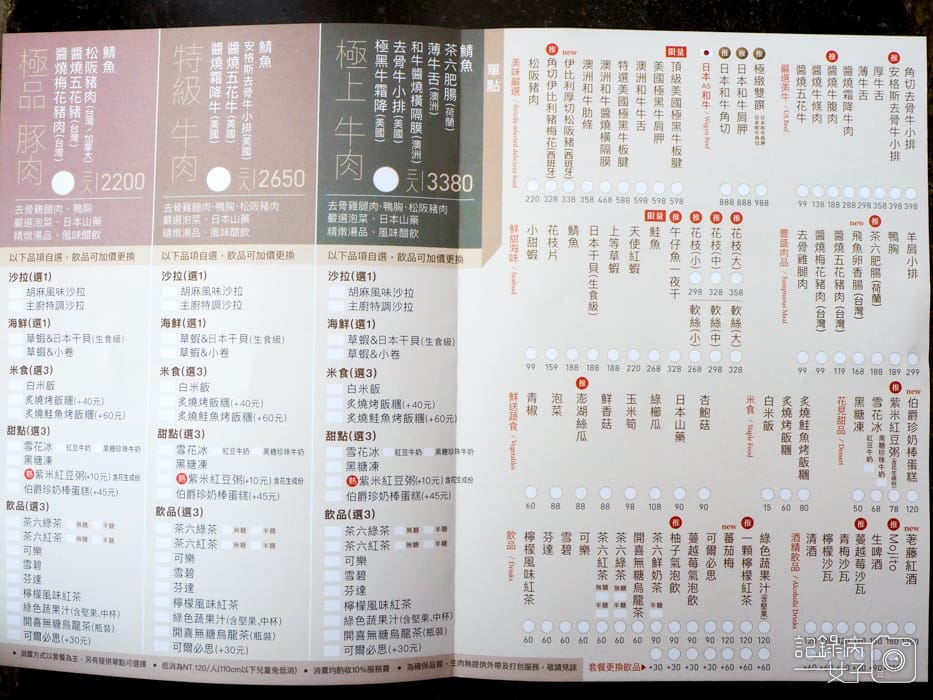 極品豚肉
鯖魚
松阪豬肉(台灣/加拿大)
醬燒五花豬(台灣)
醬燒梅花豬肉(台灣)
三人|2200
去骨雞腿肉、鴨胸
嚴選泡菜、日本山藥
精燉湯品、風味醋飲
特級牛肉
鯖魚
安格斯去骨牛小排(美國)
醬燒五花牛(美國)
醬燒霜降牛(美國)
三人|2650
去骨雞腿肉、鴨胸、松阪豬肉
嚴選泡菜、日本山藥
精燉湯品、風味醋飲
極上牛肉
鯖魚
茶六肥腸(荷蘭)
薄牛舌(澳洲)
和牛醬燒橫隔膜(澳洲)
去骨牛小排(美國)
極黑牛霜降(美國)
三人|3380
去骨雞腿肉、鴨胸、松阪豬肉
嚴選泡菜、日本山藥
精燉湯品、風味醋飲
以下品項自選，飲品可加價更換
沙拉(選1)
胡麻風味沙拉
主廚特調沙拉
海鮮(選1)
草蝦&日本干貝(生食級)
草蝦&小卷
米食(選3)
白米飯
炙燒烤飯糰(+40元)
炙燒鮭魚烤飯糰(+60元)
甜點(選3)
雪花冰 紅豆牛奶 黑糖珍珠牛奶
黑糖凍
熱 紫米紅豆粥(+10元)含花生成份
伯爵珍奶棒蛋糕(+45元)
飲品(選3)
茶六綠茶 無糖 半糖
茶六紅茶 無糖 半糖
可樂
雪碧
芬達
檸檬風味紅茶
綠色蔬果汁(含堅果,中杯)
開喜無糖烏龍茶(瓶裝)
可爾必思(+30元)
以下品項自選，飲品可加價更換
沙拉(選1)
胡麻風味沙拉
主廚特調沙拉
海鮮(選1)
草蝦&日本干貝(生食級)
草蝦&小卷
米食(選3)
白米飯
炙燒烤飯糰(+40元)
炙燒鮭魚烤飯糰(+60元)
甜點(選3)
雪花冰 紅豆牛奶 黑糖珍珠牛奶
黑糖凍
熱 紫米紅豆粥(+10元)含花生成份
伯爵珍奶棒蛋糕(+45元)
飲品(選3)
茶六綠茶 無糖 半糖
茶六紅茶 無糖 半糖
可樂
雪碧
芬達
檸檬風味紅茶
綠色蔬果汁(含堅果,中杯)
開喜無糖烏龍茶(瓶裝)
可爾必思(+30元)
以下品項自選，飲品可加價更換
沙拉(選1)
胡麻風味沙拉
主廚特調沙拉
海鮮(選1)
草蝦&日本干貝(生食級)
草蝦&小卷
米食(選3)
白米飯
炙燒烤飯糰(+40元)
炙燒鮭魚烤飯糰(+60元)
甜點(選3)
雪花冰 紅豆牛奶 黑糖珍珠牛奶
黑糖凍
熱 紫米紅豆粥(+10元)含花生成份
伯爵珍奶棒蛋糕(+45元)
飲品(選3)
茶六綠茶 無糖 半糖
茶六紅茶 無糖 半糖
可樂
雪碧
芬達
檸檬風味紅茶
綠色蔬果汁(含堅果,中杯)
開喜無糖烏龍茶(瓶裝)
可爾必思(+30元)
單點
角切去骨牛小排 398
推 安格斯去骨牛小排 398
厚牛舌 398
薄牛舌 288
醬燒霜降牛肉 288
推 醬燒牛腹肉 188
醬燒牛肉 138
醬燒五花牛 98
嚴選美牛 / US Beef
推 極緻雙饌 日本和牛肩胛 日本和牛角切 988
推 日本和牛肩胛 888
推 日本和牛角切 888
日本A5和牛 / Wagyu Beef
限量 頂級美國極黑牛板腱 598
美國極黑牛肩胛 598
特選美國極黑牛板腱 588
和牛醬燒橫隔膜 468
澳洲和牛肋條 358
new 伊比利厚切松阪豬(西班牙) 338
推 角切伊比利豬梅花(西班牙) 328
松阪豬肉 220
美味嚴選 / Strictly selected delicious food
羊肩小排 299
鴨胸 189
推 茶六肥腸(荷蘭) 188
new 飛魚卵香腸(台灣) 168
醬燒五花豬肉(台灣) 119
醬燒梅花豬肉(台灣) 99
去骨雞腿肉 99
豐盛肉品 / Sumptuous Meal
推 花枝(大) 358 軟絲(大)
推 花枝(中) 328 軟絲(中)
推 花枝(小) 298 軟絲(小)
限量 推 午仔魚一夜干 288
鮭魚 268
天使紅蝦 220
上等草蝦 188
日本干貝(生食級) 188
鯖魚 188
花枝片 159
小甜蝦 99
鮮甜海味 / Seafood
new 伯爵珍奶棒蛋糕 120
推 紫米紅豆粥 含花生成份 78
雪花冰 黑糖珍珠牛奶 紅豆牛奶 68
黑糖凍 50
花見甜品 / Dessert
炙燒鮭魚烤飯糰 80
炙燒烤飯糰 60
白米飯 15
米食 / Staple Food
杏鮑菇 90
日本山藥 90
綠櫛瓜 108
玉米筍 98
鮮香菇 88
推 澎湖絲瓜 188
泡菜 88
青椒 60
鮮送蔬食 / Vegetables
new 荖藤紅酒
推 Mojito
生啤酒
推 蔓越莓沙瓦
青梅沙瓦
檸檬沙瓦
清酒
酒精飲品 / Alcoholic Drinks
綠色蔬果汁(含堅果) 120 +60
推 一顆檸檬紅茶 120 +60
new 蕃茄梅 120 +60
可爾必思
蔓越莓氣泡飲
推 柚子氣泡飲
茶六鮮奶茶 半糖
開喜無糖烏龍茶 60
茶六綠茶 無糖 半糖 60
茶六紅茶 無糖 半糖 60
可樂 60
雪碧 60
芬達 60
檸檬風味紅茶 60
飲品 / Drinks
套餐更換飲品▶
● 消費方式以套餐為主，另有提供單點可選擇 ● 低消為NT.120/人(110cm以下兒童免低消) ● 消費均酌收10%服務費 ● 為確保品質，生肉無提供外帶及打包服務，敬請見諒
記錄病女子